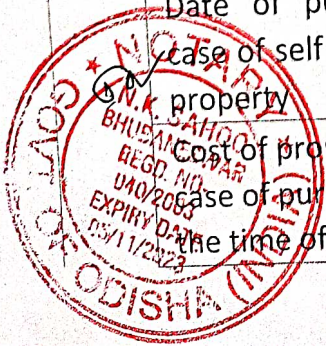 Date of
case of self
property
Cost of
case of
the time of
NOTARY
GOVT. OF ODISHA (INDIA)
N.K. SAHOO
BHUBANESWAR
REGD. NO.
040/2003
EXPIRY DATE
05/11/2023